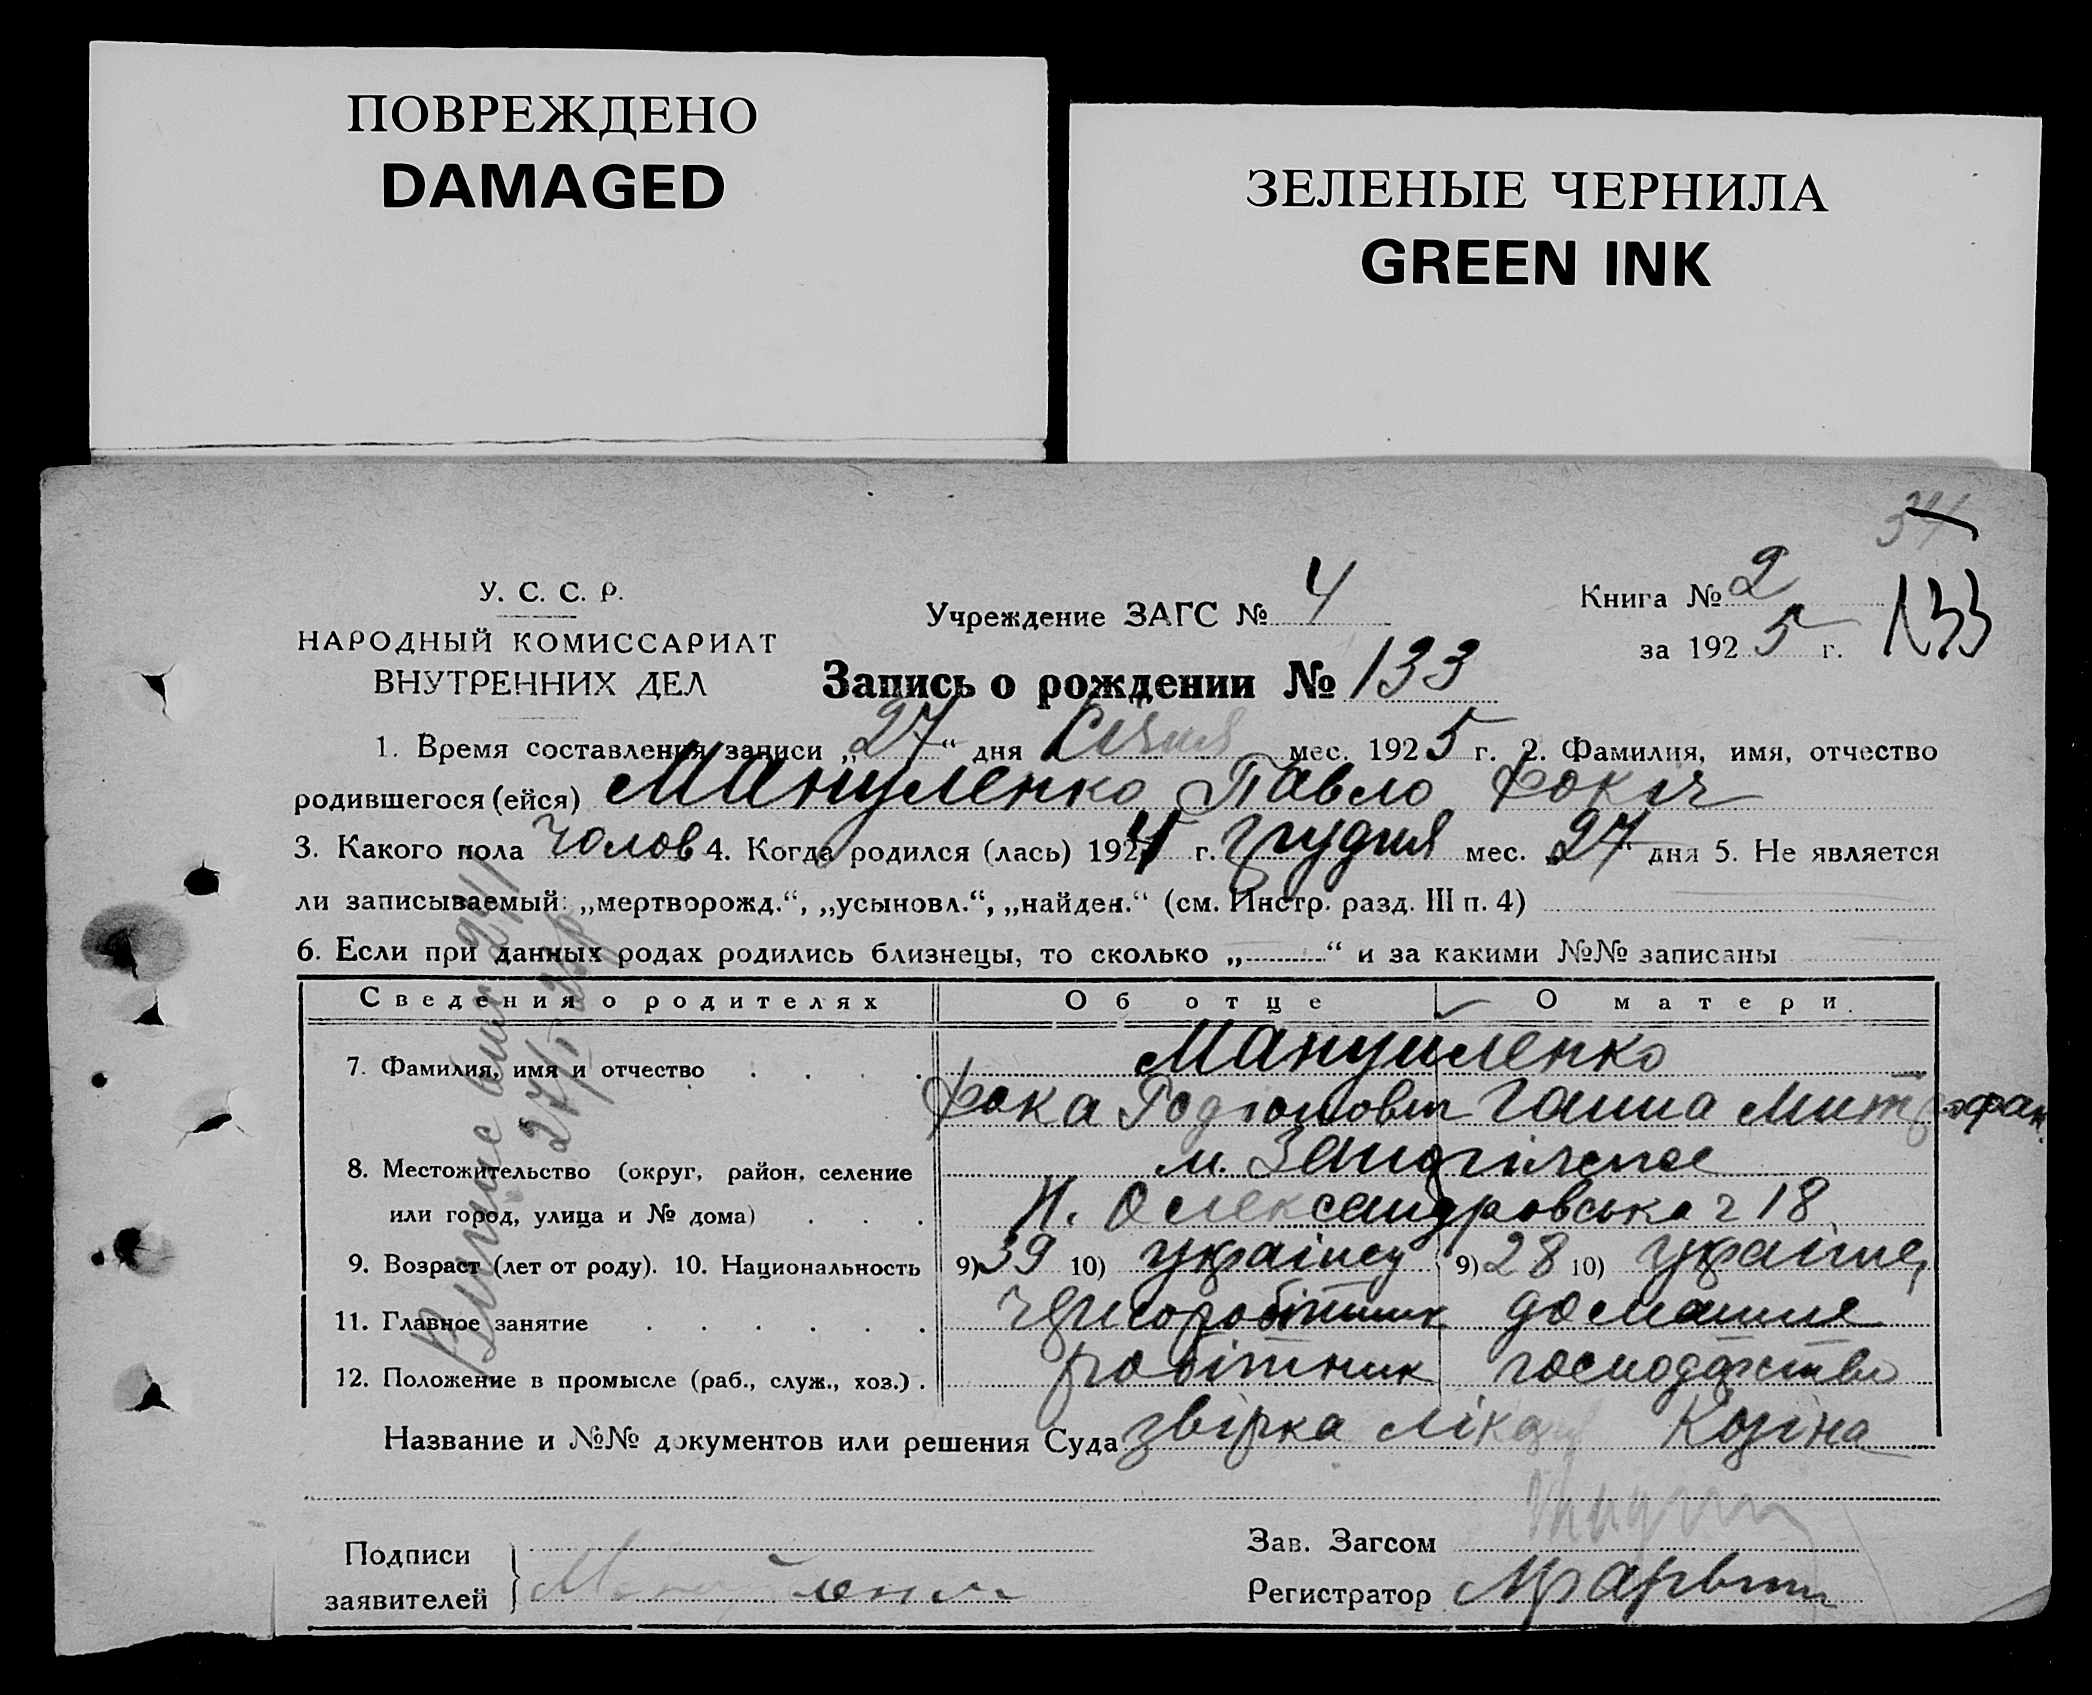 ПОВРЕЖДЕНО
DAMAGED
ЗЕЛЕНЫЕ ЧЕРНИЛА
GREEN INK
34
У. С. С. Р.
НАРОДНЫЙ КОМИССАРИАТ
ВНУТРЕННИХ ДЕЛ
Учреждение ЗАГС № 4
Книга № 2
за 1925 г. 133
Запись о рождении № 133
1. Время составления записи „27“ дня Січня мес. 1925 г. 2. Фамилия, имя, отчество
родившегося (ейся) Мануйленко Павло Фокіч
3. Какого пола Чолов 4. Когда родился (лась) 1924 г. Грудня мес. „27“ дня 5. Не является
ли записываемый: „мертворожд.“, „усыновл.“, „найден.“ (см. Инстр. разд. III п. 4)
6. Если при данных родах родились близнецы, то сколько „ “ и за какими №№ записаны
Сведения о родителях Об отце О матери
7. Фамилия, имя и отчество Мануйленко
Фока Родіонович Ганна Митрофан.
8. Местожительство (округ, район, селение м.
или город, улица и № дома) Н. Олександровська ч 18
9. Возраст (лет от роду). 10. Национальность 9) 39 10) українец 9) 28 10) українк
11. Главное занятие Чорноробітник домашне
12. Положение в промысле (раб., служ., хоз.) робітник господарство
Название и №№ документов или решения Суда звірка лікаря
Подписи
заявителей Мануйленко
Зав. Загсом
Регистратор